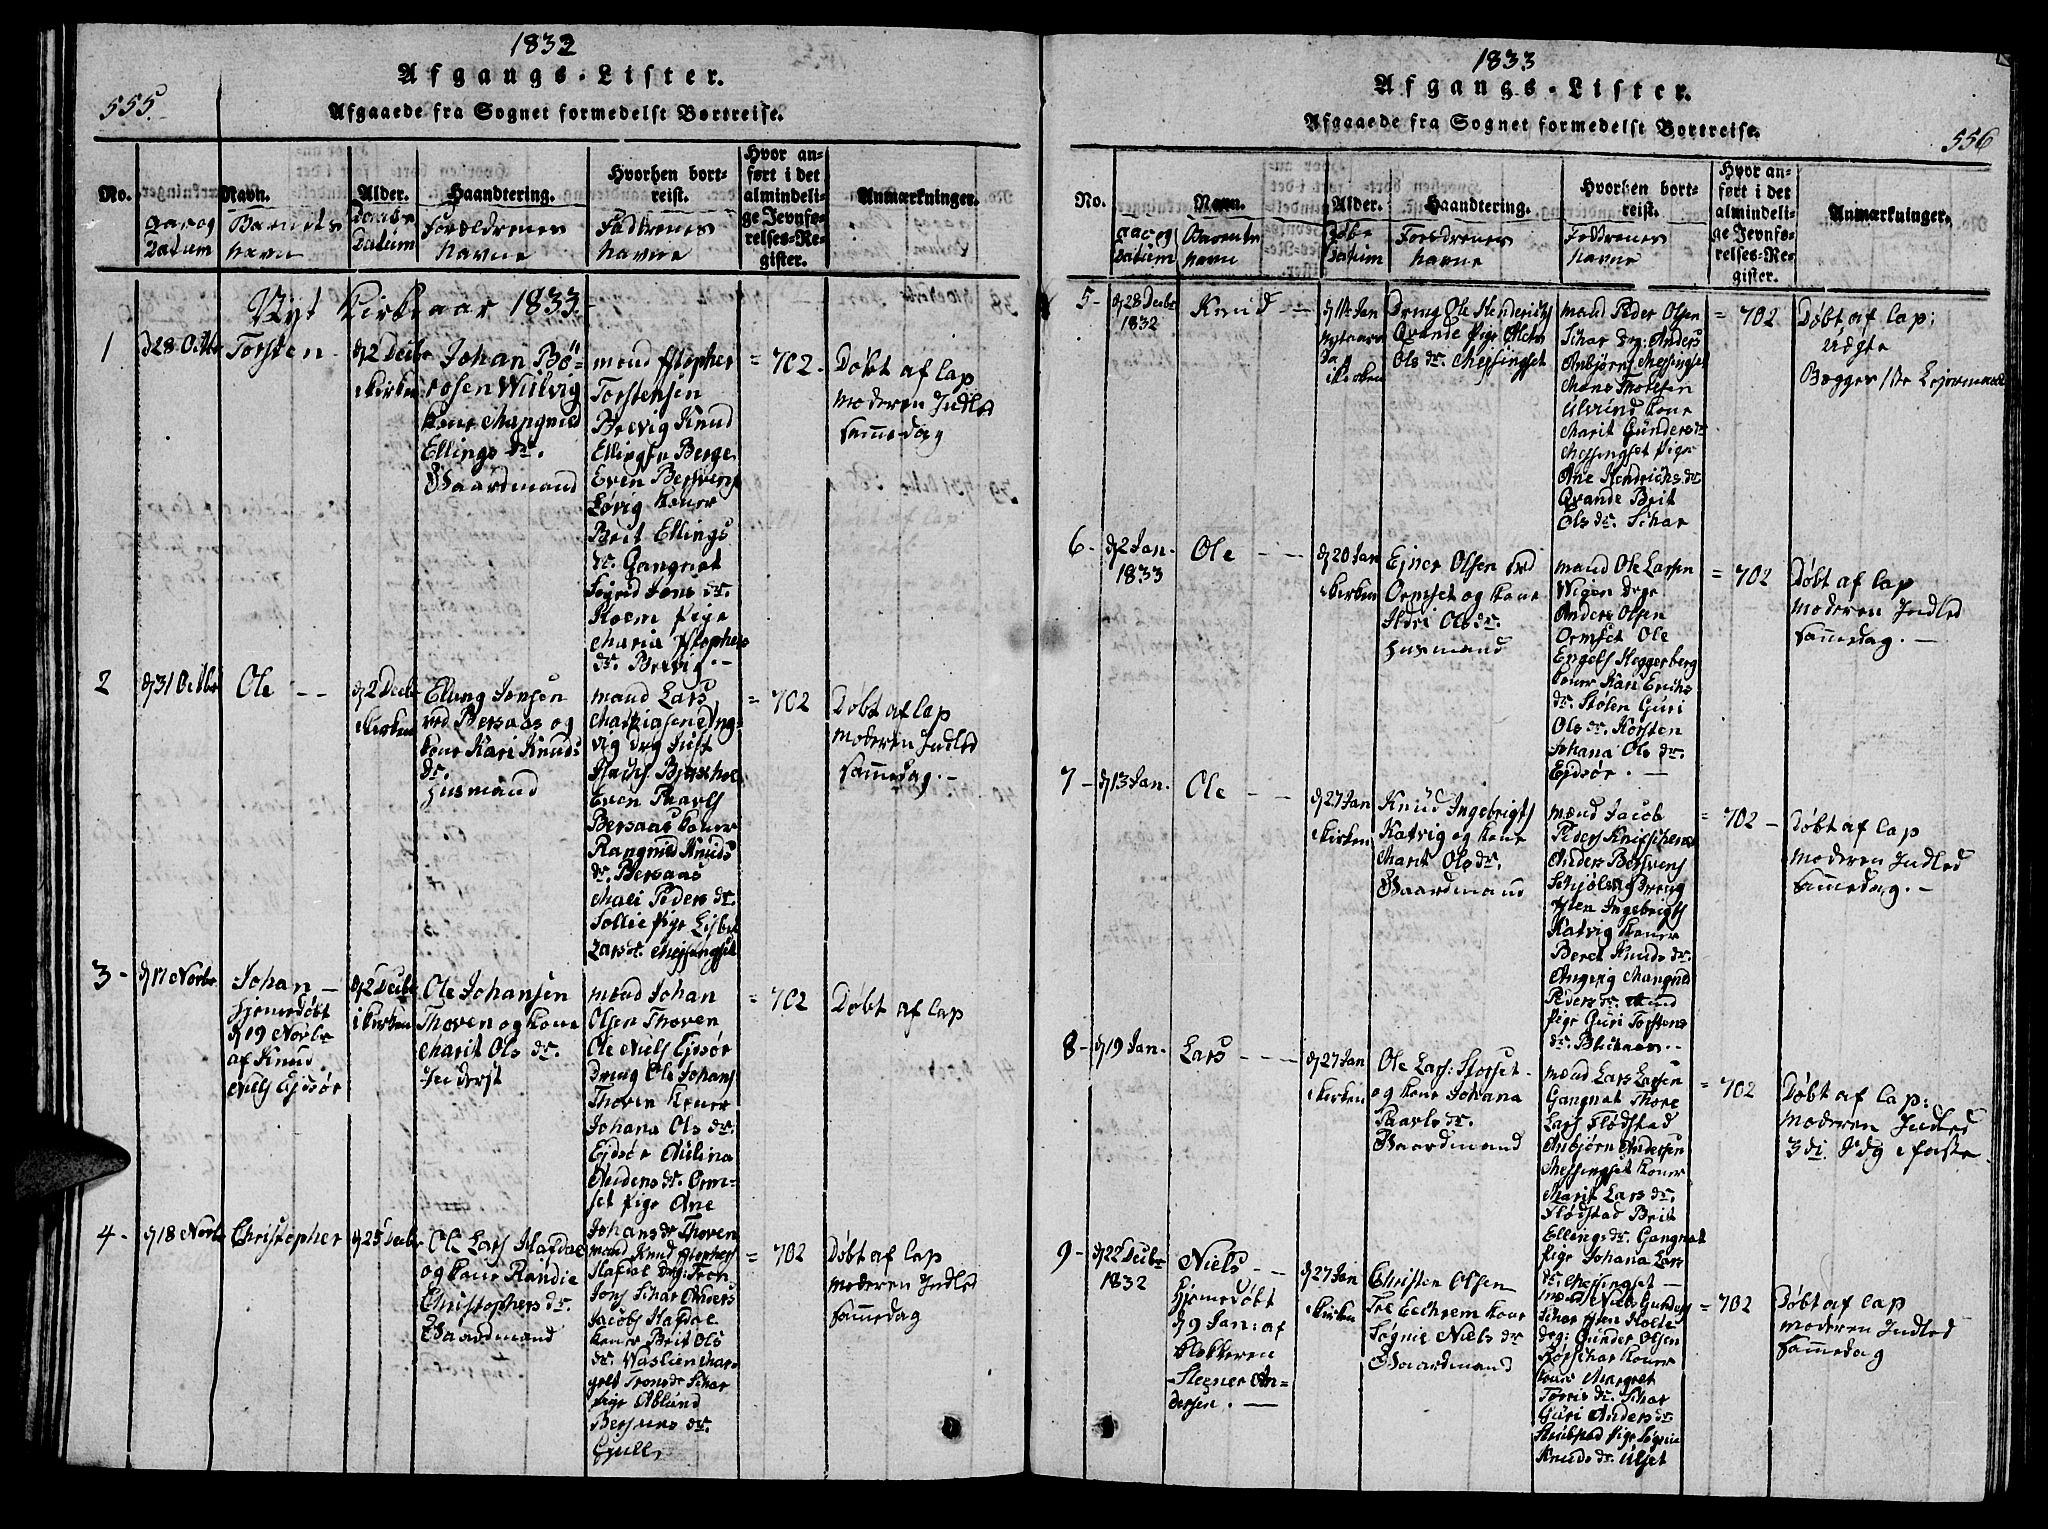 1832
Afgangs-Lister.
555.
Afgaaede fra Sognet formedelst Bortreise.
No.
Navn.
Alder.
Haandtering.
Hvorhen bort-
reist.
Hvor an-
ført i det
almindeli-
ge Jevnfø-
relses-Re-
gister.
Anmærkninger.
aar og
Datum
Barnets
navn
Daabs
Datum
Forældrenes
Navne
Faddrenes
Navne
Nyt Kirkeaar 1833
1
d 28 Octbr
Torsten
d 2 Decbr
i Kirken
Johan Bö-
rosen Wulvig
Kone Mangnild
Ellings dr.
Gaardmand
mænd Kstopher
Torstensen
Brevig Knud
Ellingsen Berge
Even Bersvens
Løvig Koner
Brit Ellings
dr. Gangnat
Sigrid Jons dr.
Roem Pige
Maria Kstophers
dr. Brevig. -
= 702.
Døbt af Cap
Moderen Indled
samedag
2
d 31 Octbr
Ole
d 2 Decbr
i Kirken
Elling Jonsen
ved Bersaas og
Kone Kari Knuds
dr.
Husmand
mænd Lars
Mathiasen Eng-
vig drg Just
Bersaas Koner
Rangnild Knuds
dr. Bersaas
Mali Peders dr.
Tollie Pige Lisbet
Lars dr. Messingset
= 702
Døbt af Cap
Moderen Indled
samedag. -
3 -
d 17 Novbr
Johan -
hjemedøbt
d 19 Novbr
af Knud
Niels Ejdsör
d 2 Decbr
i Kirken
Ole Johansen
Thoven og Kone
Marit Ols dr.
Inderst
mænd Johan
Olsen Thoven
Ole Niels Ejdsör
dreng Ole Johans
Thoven Koner
Johana Ols dr.
Ejdsör Aulina
Andersdr. Orm-
set Pige Ane
Johansdr Thoven
= 702
Døbt af Cap
4 -
d 18 Novbr
Christopher
d 25 Decbr
Ole Lars Hafdal
og Kone Randie
Christophers dr.
Gaardmand
mænd Knud Kstophers
Hafdal drg: Tron
Jons Schar Anders
Jacobs Hafdal
Koner Brit Ols
dr. Waslien Mar-
gret Tronsdr Schar
Pige Ablund
Bersvens dr.
Gjull
= 702
Døbt af Cap
Moderen Indled
samedag
1833
Afgangs-Lister.
Afgaaede fra Sognet formedelst Bortreise.
556
No.
Navn.
Alder.
Haandtering.
Hvorhen bort-
reist.
Hvor an-
ført i det
almindeli-
ge Jevnfø-
relses-Re-
gister.
Anmærkninger.
aar og
Datum
Barnets
navn
Døbe
Datum
Forældrenes
Navne
Faddrenes
Navne
5 -
d 28 Decbr
1832
Knud
d 1 Jan
nytaars
Dag
i Kirken
Dreng Ole Henderichs
Qvande Pige
Ols dr. Messingset
mænd Peder Olsen
Schar drg: Anders
Anbjörns Messingset
Mons Tholesen
Ulvund Kone
Marit Gunders dr
Messingset Pige
Ane Hendrichs dr
Qvande Brit
Ols dr. Schar
= 702
Døbt af Cap:
Uægte
Begges 1ste Lejermaal
6 -
d 2 Jan.
1833
Ole
d 20 Jan
i Kirken
Ejner Olsen ved
Ormset og Kone
Sidri Ols dr.
Husmand
mænd Ole Larsen
Wigen drg:
Anders Olsen
Ormset Ole
Engels Heggerberg
Koner Kari Erichs
dr. Stølen Guri
Ols dr. Korsten
Johana Ols dr.
Ejdsör. -
= 702
Døbt af Cap
Moderen Indled
samedag. -
7 -
d 13 Jan.
Ole
d 27 Jan
i Kirken
Knud Ingebrigts
Katvig og Kone
Marit Ols dr.
Gaardmand
mænd Jacob
Peders
Anders Bersvens
Schjölsvig Dreng
Sten Ingebrigts
Katvig Koner
Beret Knuds dr.
Angvig Mangnild
Peders dr. Sund
Pige Guri Torstens
dr.
= 702 -
Døbt af Cap
Moderen Indled
samedag. -
8 -
d 19 Jan.
Lars
d 27 Jan
i Kirken
Ole Lars: Storset
og Kone Johana
Paavels dr.
Gaardmand
mænd Lars Larsen
Gangnat Thore
Lars Flødstad
Anbjørn Andersen
Messingset Koner
Marit Lars dr.
Flødstad Brit
Ellings dr. Gangnat
Pige Johana Lars
dr. Messingset -
= 702
Døbt af Cap:
Moderen Indled
3di Sdg i faste
9 -
d 22 Decbr
1832
Niels
hjemedøbt
d 9 Jan: af
Klokkeren
Stener An-
dersen. -
d 27 Jan
i Kirken
Christen Olsen
Kone
Sögnie Niels dr
Gaardmand
mænd Niels Gunders
Schar Sten Holte
drg: Gunder Olsen
Schar Koner
Margret
Torris dr. Schar
Guri Anders dr
Pige Sögnie
Knuds dr. Ulset
= 702
Døbt af Cap
Moderen Indled
samedag